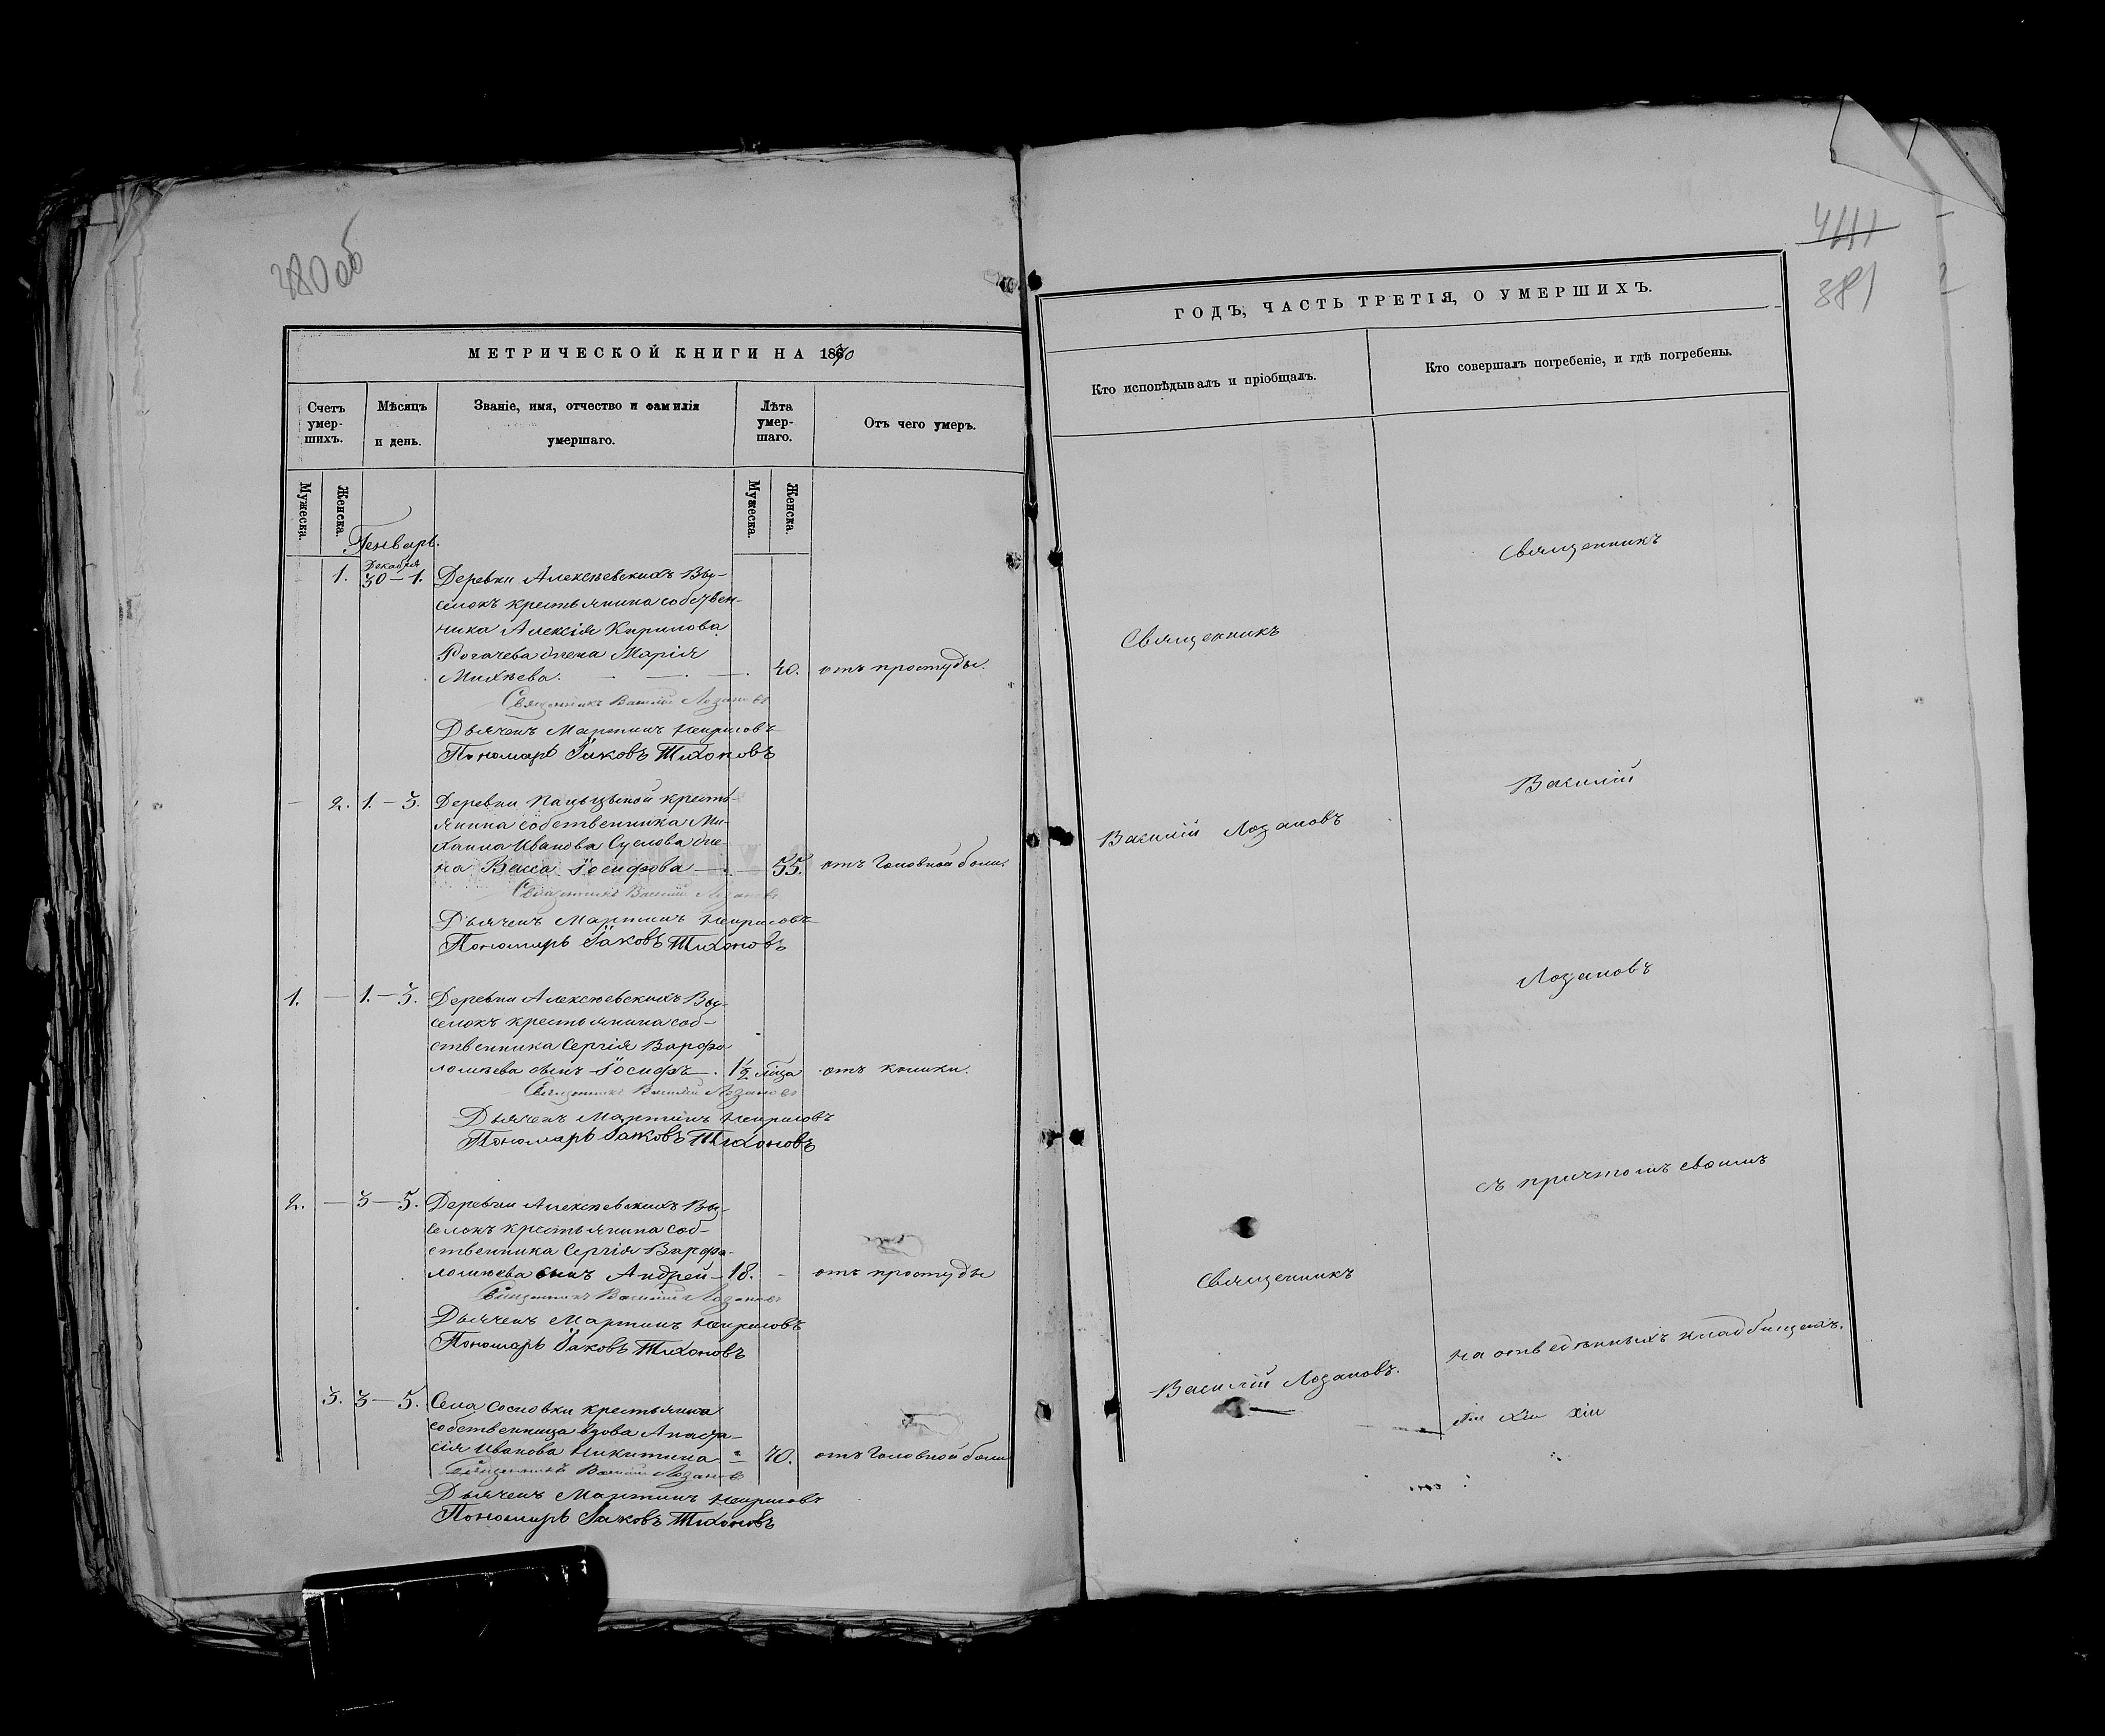 380 об
МЕТРИЧЕСКОЙ КНИГИ НА 1870
Счетъ умер-шихъ.
Мѣсяцъ и день.
Званіе, имя, отчество и фамилія умершаго.
Лѣта умер-шаго.
Отъ чего умеръ.
Мужеска.
Женска.
Мужеска.
Женска.
Генварь.
Декабря
1. 30 – 1. Деревни Алексѣевскихъ Вы-
селокъ крестьянина собствен-
ника Алексія Кирилова
Рогачева жена Марія
Михѣева. 40. отъ простуды.
Священникъ Василій Лозановъ
Дьячекъ Мартинъ
Пономарь Іаковъ Тихоновъ
— 2. 1. – 3. Деревни кресть-
янина собственника Ми-
хаила Иванова Суслова же-
на Васса Іосифова — 55. отъ головной боли.
Священникъ Василій Лозановъ
Дьячекъ Мартинъ
Пономарь Іаковъ Тихоновъ
1. — 1. – 3. Деревни Алексѣевскихъ Вы-
селокъ крестьянина соб-
ственника Сергія Варфо-
ломѣева сынъ Іосифъ —. 1½ отъ колики.
Священникъ Василій Лозановъ
Дьячекъ Мартинъ
Пономарь Іаковъ Тихоновъ
2. — 3 – 5. Деревни Алексѣевскихъ Вы-
селокъ крестьянина соб-
ственника Сергія Варфо-
ломѣева сынъ Андрей – 18. - отъ простуды
Священникъ Василій Лозановъ
Дьячекъ Мартинъ
Пономарь Іаковъ Тихоновъ
3. 3 – 5. Села Сосновки крестьянка
собственница вдова Анаста-
сія Иванова Никитина – 70. отъ головной боли
Священникъ Василій Лозановъ
Дьячекъ Мартинъ
Пономарь Іаковъ Тихоновъ
441
381
ГОДЪ, ЧАСТЬ ТРЕТІЯ, О УМЕРШИХЪ.
Кто исповѣдывалъ и пріобщалъ.
Кто совершалъ погребеніе, и гдѣ погребены.
Священникъ
Василій Лозановъ
Священникъ
Василій Лозановъ.
Священникъ
Василій
Лозановъ
съ причтомъ своимъ
на отведенныхъ кладбищахъ.